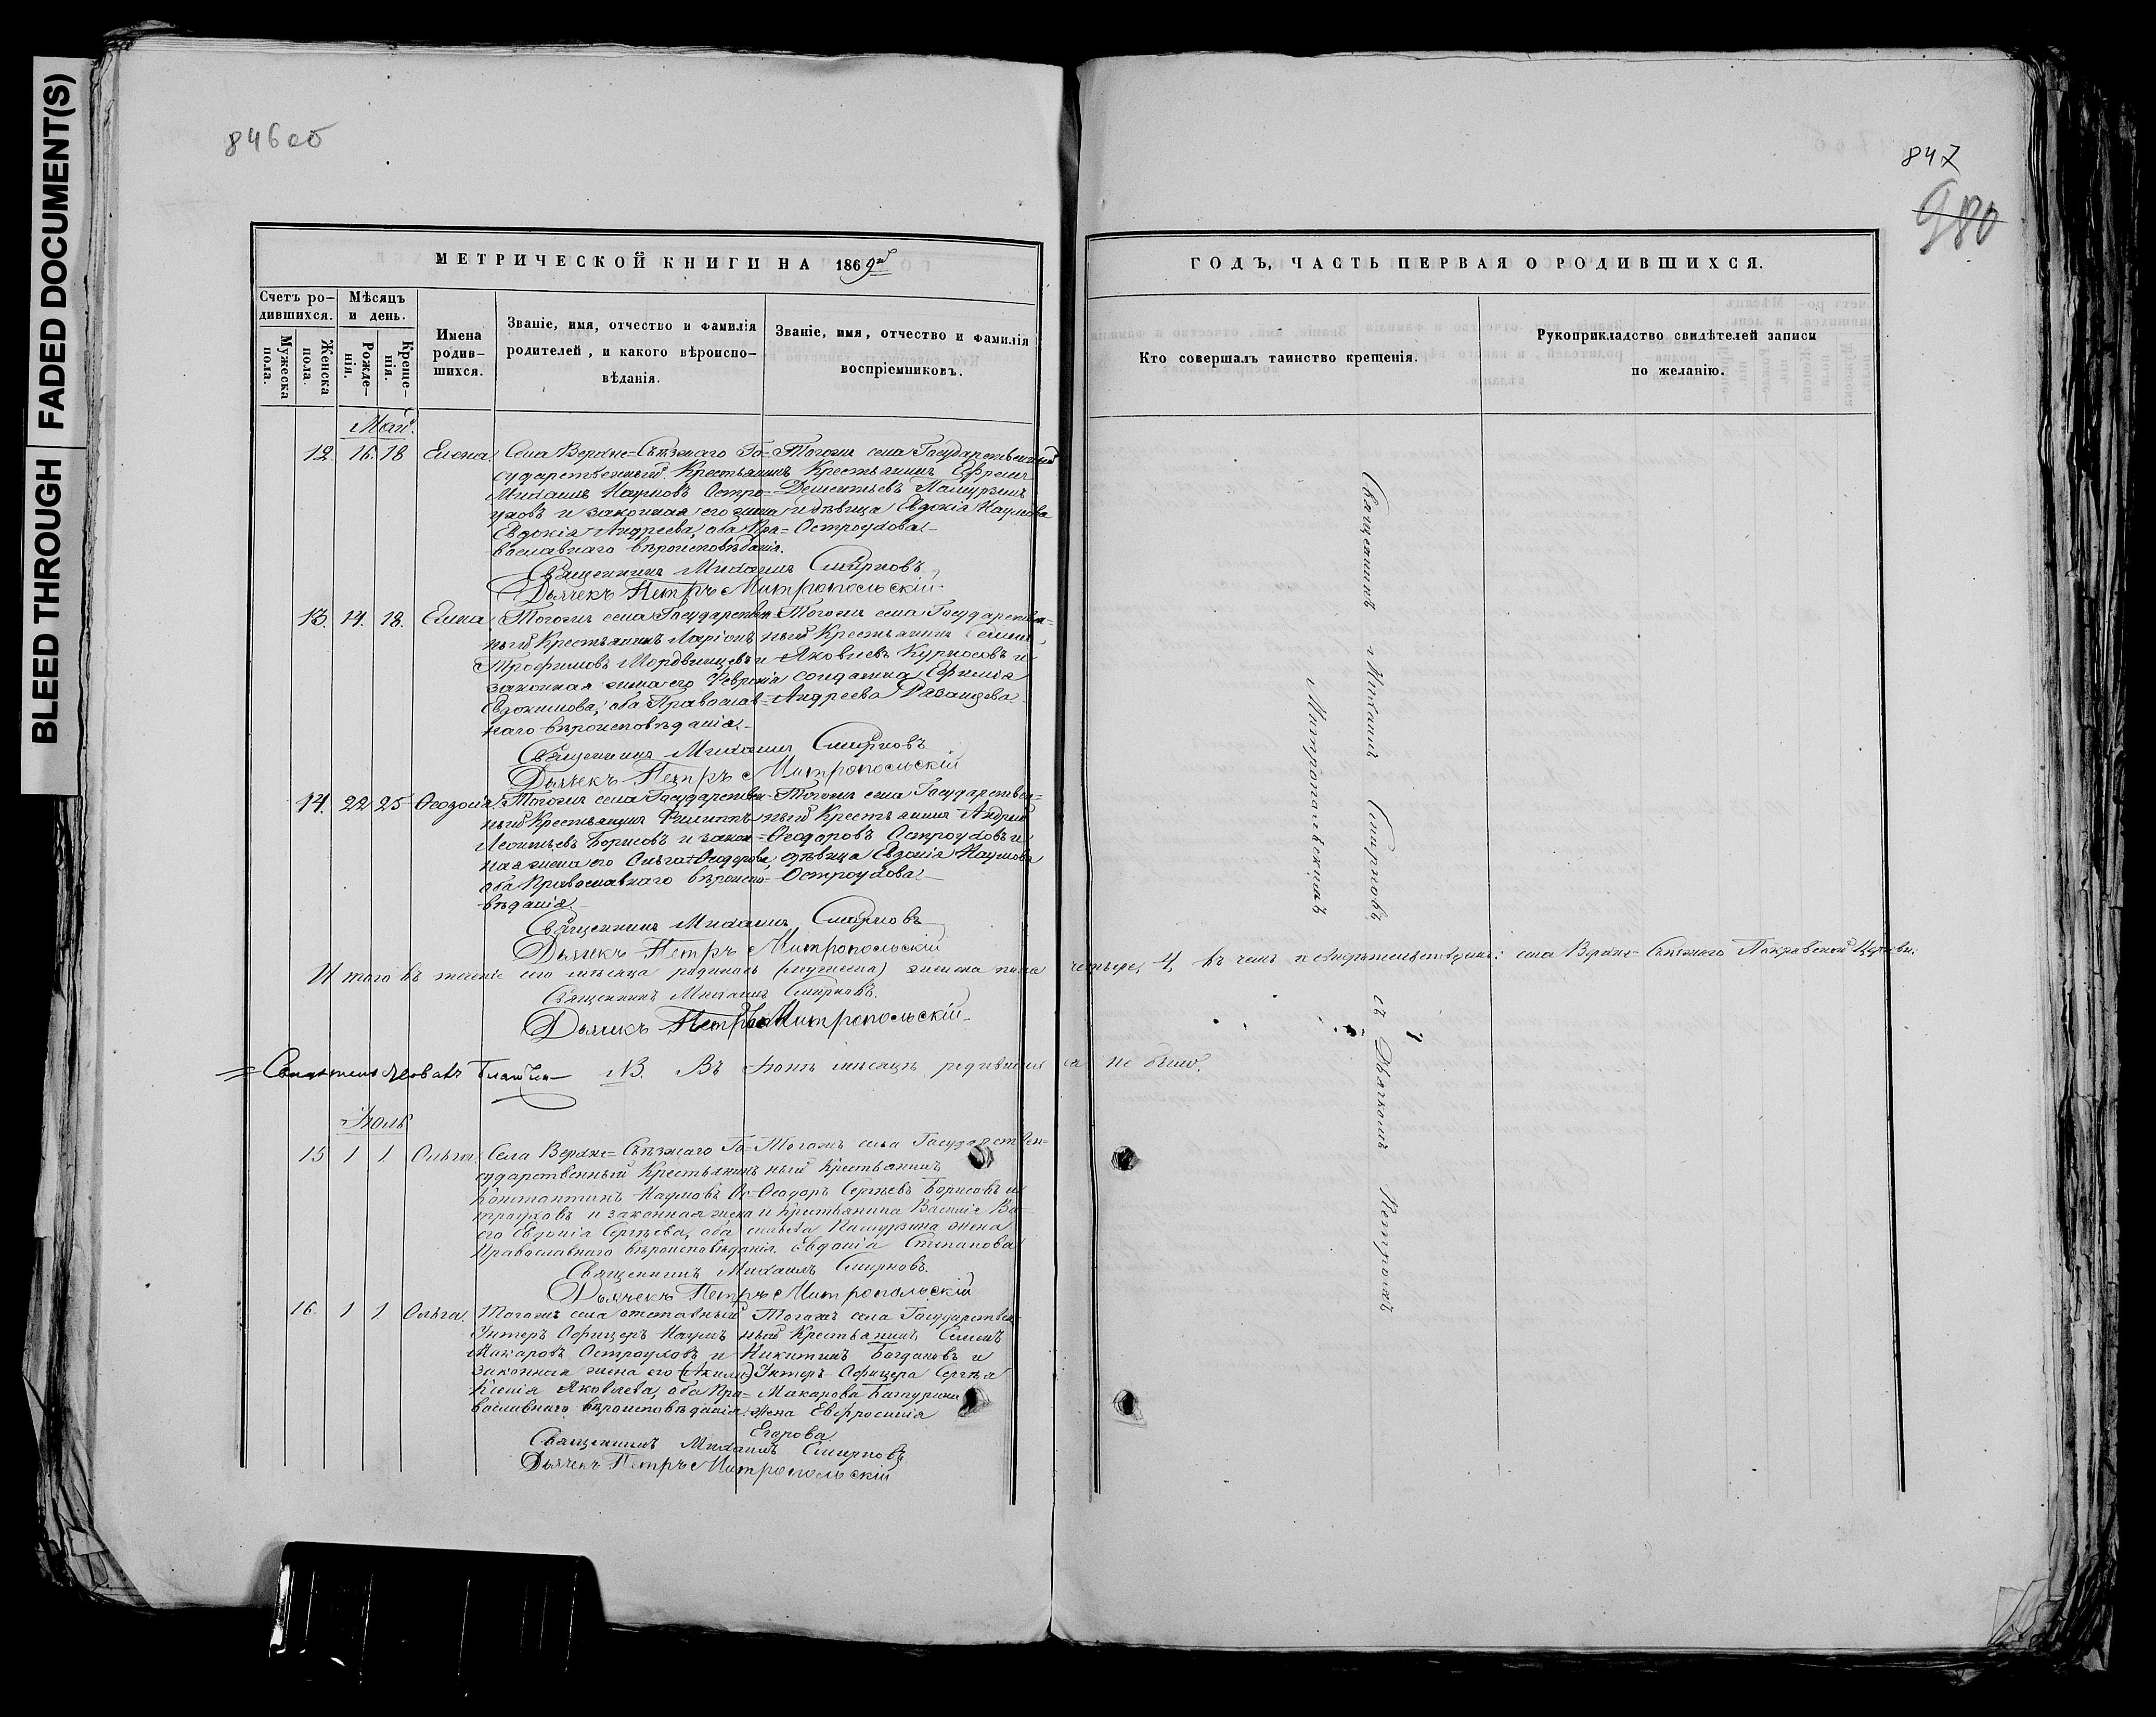 BLEED THROUGH
FADED DOCUMENT(S)
846 об
847
980
МЕТРИЧЕСКОЙ КНИГИ НА 1869й
Счетъ родившихся.
Мужеска пола.
Женска пола.
Мѣсяцъ и день.
Рожденія.
Крещенія.
Имена родившихся.
Званіе, имя, отчество и фамилія
родителей, и какого вѣроиспо-
вѣданія.
Званіе, имя, отчество и фамилія
воспріемниковъ.
ГОДЪ, ЧАСТЬ ПЕРВАЯ О РОДИВШИХСЯ.
Кто совершалъ таинство крещенія.
Рукоприкладство свидѣтелей записи
по желанію.
Май.
12. 16. 18 Елена.
Села Верхне=Съѣзжаго Го=
сударственный Крестьянинъ
Михаилъ Наумовъ Остро=
уховъ и законная его жена
Евдокія Андреева, оба Пра=
вославнаго вѣроисповѣданія.
Тогожъ села Государственный
Крестьянинъ Ефремъ
Дементьевъ Пашурзинъ
и дѣвица Евдокія Наумова
Остроухова.
Священникъ Михаилъ Смирновъ
Дьячекъ Петръ Митропольскій
13. 14. 18. Елена
Тогожъ села Государствен-
ный Крестьянинъ Ларіонъ
Трофимовъ Мордвинцевъ и
законная жена его Февронія
Евдокимова, оба Православ=
наго вѣроисповѣданія.
Тогожъ села Государствен=
ный Крестьянинъ Семенъ
Яковлевъ Курносовъ и
солдатка Ефимія
Андреева Рязанцева
Священникъ Михаилъ Смирновъ
Дьячекъ Петръ Митропольскій
14. 22 25 Ѳеодосія
Тогожъ села Государствен-
ный Крестьянинъ Филиппъ
Леонтьевъ Борисовъ и закон=
ная жена его Ольга Ѳеодорова
оба Православнаго вѣроиспо=
вѣданія.
Тогожъ села Государствен=
ный Крестьянинъ Андрей
Ѳеодоровъ Остроуховъ и
дѣвица Евдокія Наумова
Остроухова
Священникъ Михаилъ Смирновъ
Дьячекъ Петръ Митропольскій
Итого въ теченіе сего мѣсяца родилось (мужеска) женска пола четыре, 4, въ чемъ и свидѣтельствуемъ: села Верхне=Съѣзжаго Покровской Церкви:
Священникъ Михаилъ Смирновъ.
Дьячекъ Петръ Митропольскій
= Свидѣтельствовалъ NB. Въ Іюнѣ мѣсяцѣ родившихся не было.
Іюль
15 1 1 Ольга.
Села Верхне=Съѣзжаго Го=
сударственный Крестьянинъ
Константинъ Наумовъ Ос=
троуховъ и законная жена
его Евдокія Сергѣева, оба
Православнаго вѣроисповѣданія
Тогожъ села Государствен=
ный Крестьянинъ
Ѳеодоръ Сергѣевъ Борисовъ и
Крестьянина Василія Ва=
сильева Пашурзина жена
Евдокія Степанова
Священникъ Михаилъ Смирновъ.
Дьячекъ Петръ Митропольскій
16. 1 1. Ольга.
Тогожъ села отставный
Унтеръ Офицеръ Наумъ
Макаровъ Остроуховъ и
законная жена его
Яковлева, оба Пра=
вославнаго вѣроисповѣданія.
Тогожъ села Государствен-
ный Крестьянинъ Семенъ
Никитинъ Богдановъ и
Унтеръ-Офицера Сергѣя
Макарова Батурина
жена Евфросинія
Егорова
Священникъ Михаилъ Смирновъ
Дьячекъ Петръ Митропольскій
Священникъ Михаилъ Смирновъ съ Дьячкомъ Петромъ
Митропольскимъ